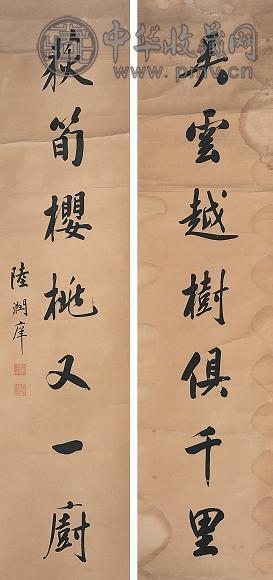 吳雲越樹俱千里
荻筍櫻桃又一廚
陸潤庠
中华收藏网
www.pmcv.cn